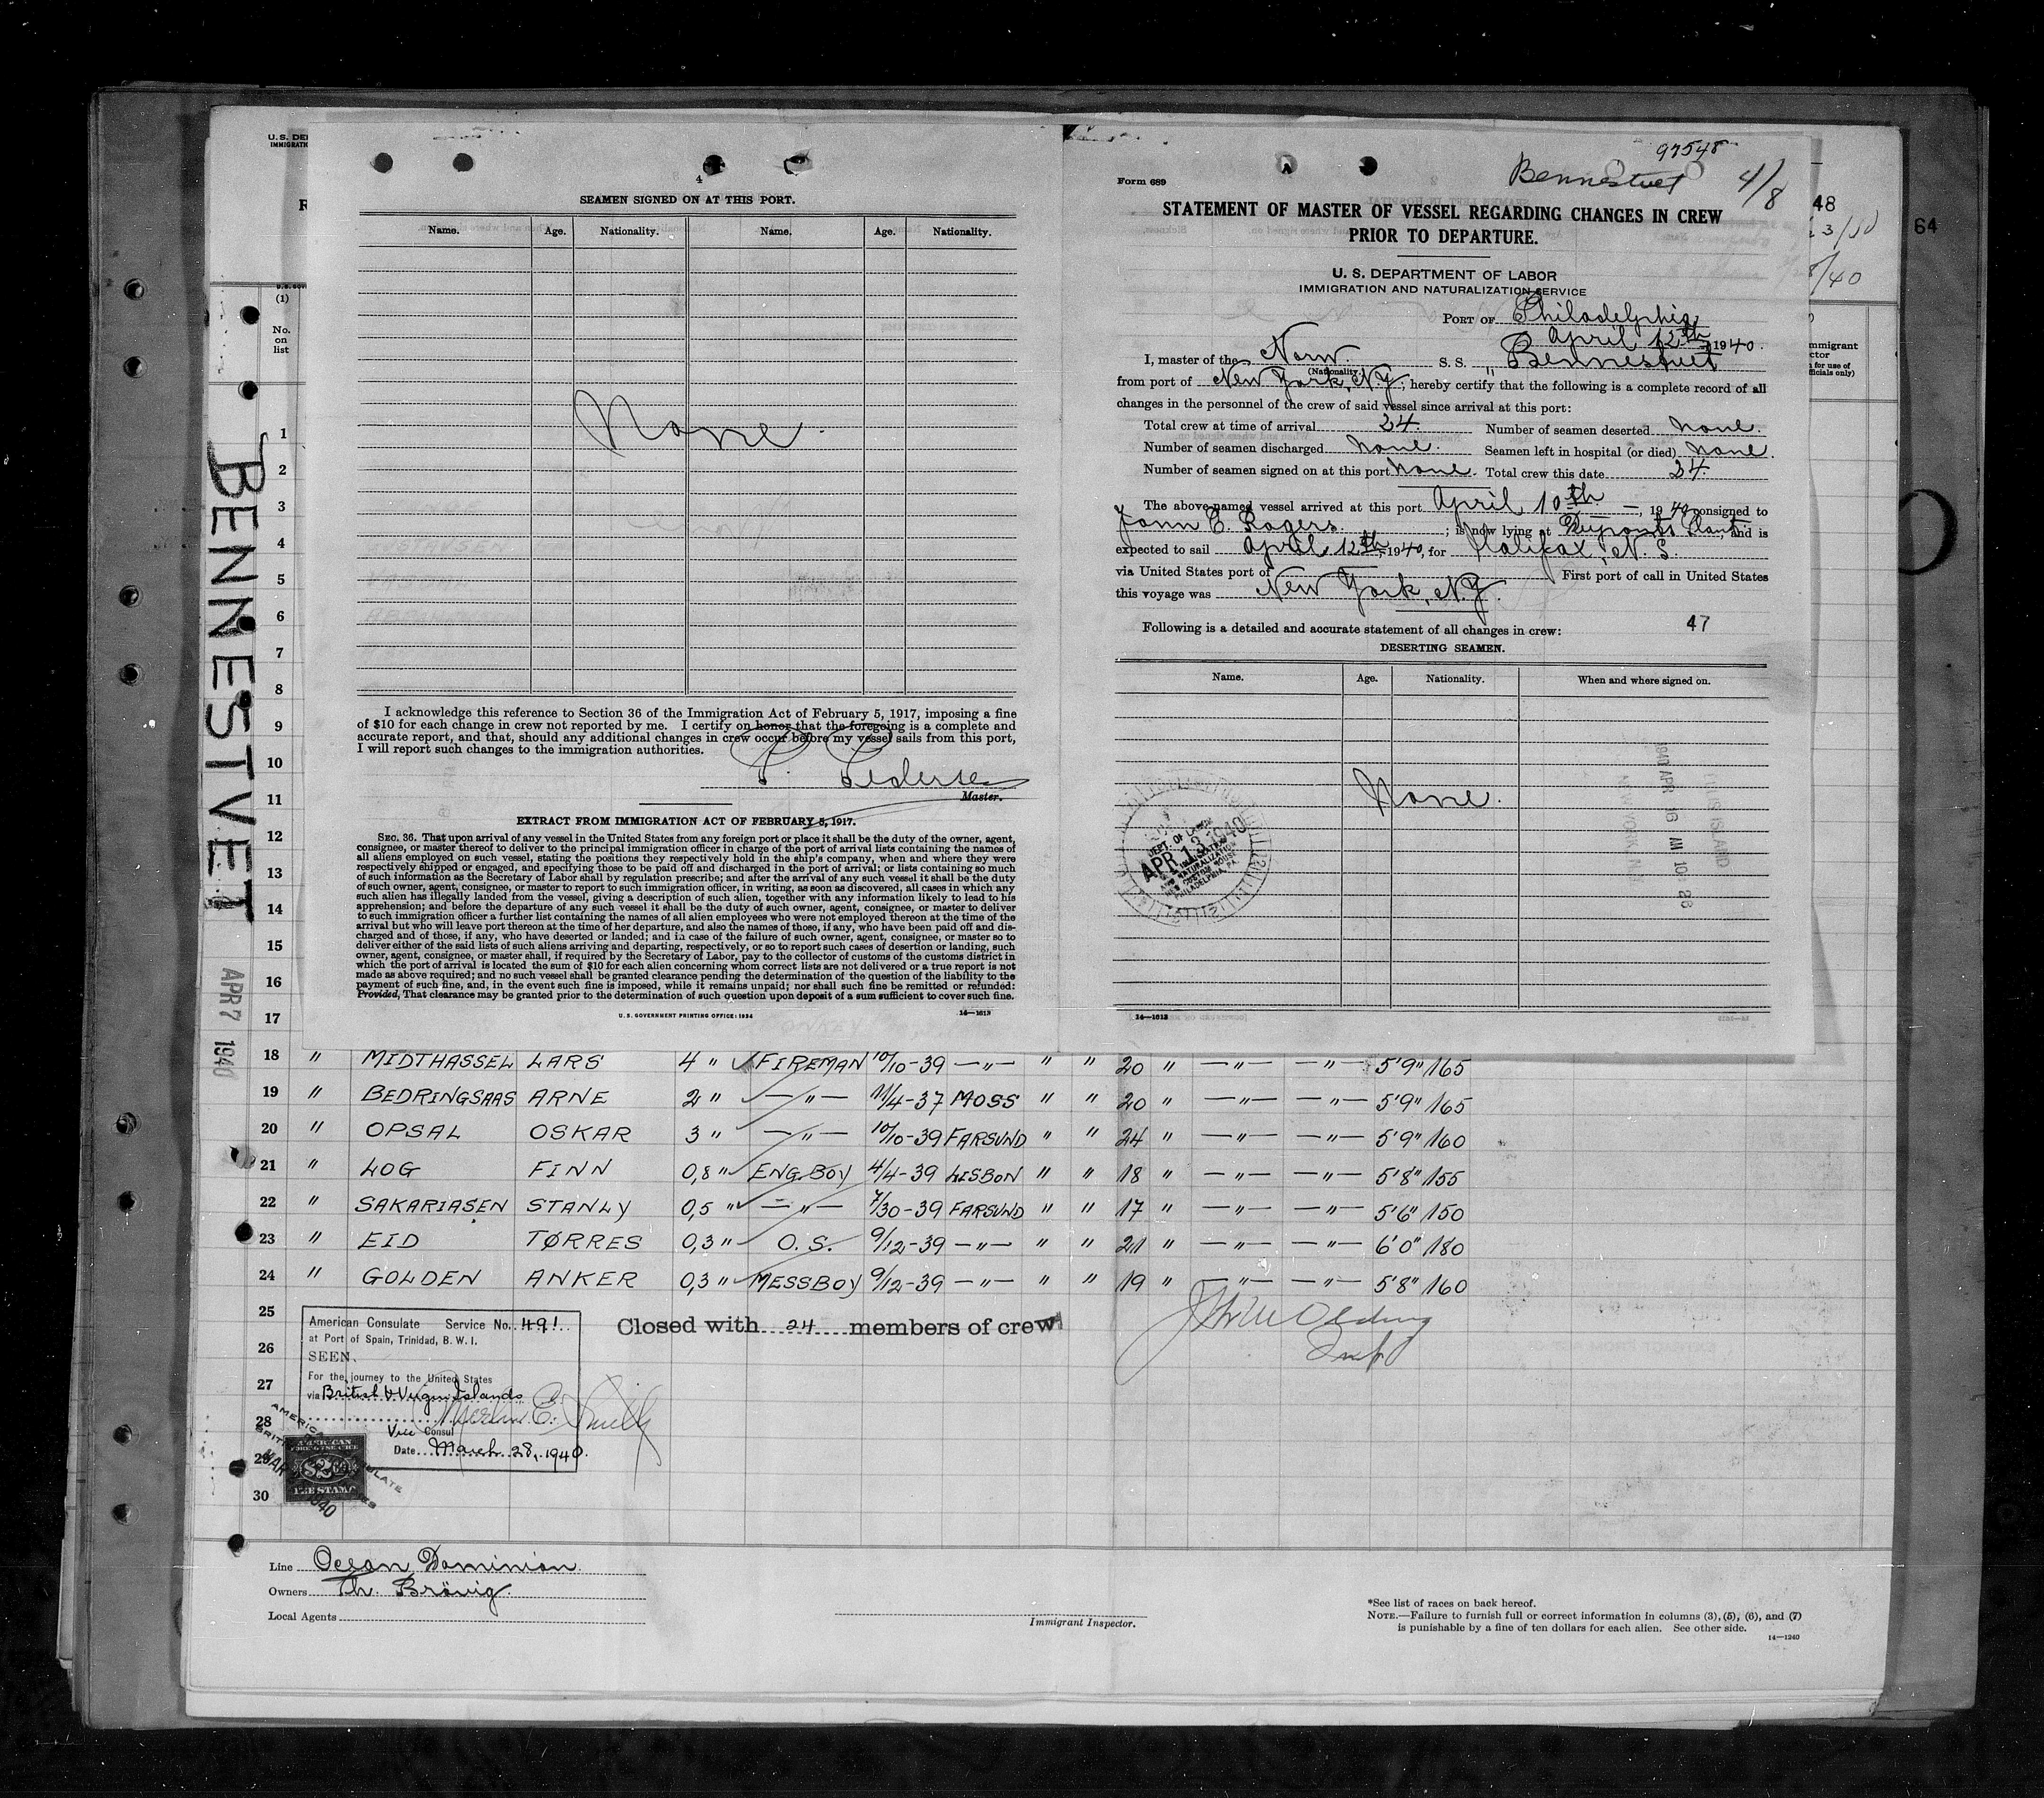 U. S. DE
IMMIGRATI
R
4
SEAMEN SIGNED ON AT THIS PORT.
Name. Age. Nationality. Name. Age. Nationality.
None
I acknowledge this reference to Section 36 of the Immigration Act of February 5, 1917, imposing a fine
of $10 for each change in crew not reported by me. I certify on honor that the foregoing is a complete and
accurate report, and that, should any additional changes in crew occur before my vessel sails from this port,
I will report such changes to the immigration authorities.
P. Pedersen
Master.
EXTRACT FROM IMMIGRATION ACT OF FEBRUARY 5, 1917.
SEC. 36. That upon arrival of any vessel in the United States from any foreign port or place it shall be the duty of the owner, agent,
consignee, or master thereof to deliver to the principal immigration officer in charge of the port of arrival lists containing the names of
all aliens employed on such vessel, stating the positions they respectively hold in the ship's company, when and where they were
respectively shipped or engaged, and specifying those to be paid off and discharged in the port of arrival; or lists containing so much
of such information as the Secretary of Labor shall by regulation prescribe; and after the arrival of any such vessel it shall be the duty
of such owner, agent, consignee, or master to report to such immigration officer, in writing, as soon as discovered, all cases in which any
such alien has illegally landed from the vessel, giving a description of such alien, together with any information likely to lead to his
apprehension; and before the departure of any such vessel it shall be the duty of such owner, agent, consignee, or master to deliver
to such immigration officer a further list containing the names of all alien employees who were not employed thereon at the time of the
arrival but who will leave port thereon at the time of her departure, and also the names of those, if any, who have been paid off and dis-
charged and of those, if any, who have deserted or landed; and in case of the failure of such owner, agent, consignee, or master so to
deliver either of the said lists of such aliens arriving and departing, respectively, or so to report such cases of desertion or landing, such
owner, agent, consignee, or master shall, if required by the Secretary of Labor, pay to the collector of customs of the customs district in
which the port of arrival is located the sum of $10 for each alien concerning whom correct lists are not delivered or a true report is not
made as above required; and no such vessel shall be granted clearance pending the determination of the question of the liability to the
payment of such fine, and, in the event such fine is imposed, while it remains unpaid; nor shall such fine be remitted or refunded:
Provided, That clearance may be granted prior to the determination of such question upon deposit of a sum sufficient to cover such fine.
U. S. GOVERNMENT PRINTING OFFICE: 1934 14—1613
97548
Form 689
Bennestvet 4/8
STATEMENT OF MASTER OF VESSEL REGARDING CHANGES IN CREW
PRIOR TO DEPARTURE.
U. S. DEPARTMENT OF LABOR
IMMIGRATION AND NATURALIZATION SERVICE
PORT OF Philadelphia,
April 12th, 1940.
I, master of the Norw. S. S. "Bennestvet
(Nationality.)
from port of New York, N.Y., hereby certify that the following is a complete record of all
changes in the personnel of the crew of said vessel since arrival at this port:
Total crew at time of arrival 24. Number of seamen deserted None.
Number of seamen discharged None. Seamen left in hospital (or died) None.
Number of seamen signed on at this port None. Total crew this date 24.
The above-named vessel arrived at this port April 10th —, 1940, consigned to
John E. Rogers ; is now lying at Duponts Plant, and is
expected to sail April 12th, 1940, for Halifax, N. S.
via United States port of First port of call in United States
this voyage was New York, N.Y.
Following is a detailed and accurate statement of all changes in crew: 47
DESERTING SEAMEN.
Name. Age. Nationality. When and where signed on.
None.
DEPT. OF LABOR
APR 13 1940
IMMIGRATION
AND NATURALIZATION
NEW CUSTOM HOUSE
PHILADELPHIA, PA.
1940 APR 16 AM 10:26
ELLIS ISLAND
NEW YORK, N.
14—1613
48
64
3/
8/40
mmigrant
ctor
n for use of
fficials only)
BENNESTVET
APR 7 1940
(1)
No.
on
list
1
2
3
4
5
6
7
8
9
10
11
12
13
14
15
16
17
18 " MIDTHASSEL LARS 4 " FIREMAN 10/10-39 —"— " " 20 " —"— —"— 5'9" 165
19 " BEDRINGSAAS ARNE 2 " —"— 11/4-37 MOSS " " 20 " —"— —"— 5'9" 165
20 " OPSAL OSKAR 3 " —"— 10/10-39 FARSUND " " 24 " —"— —"— 5'9" 160
21 " LOG FINN 0,8 " ENG.BOY 4/4-39 LISBON " " 18 " —"— —"— 5'8" 155
22 " SAKARIASEN STANLY 0,5 " —"— 7/30-39 FARSUND " " 17 " —"— —"— 5'6" 150
23 " EID TØRRES 0,3 " O. S. 9/12-39 —"— " " 21 " —"— —"— 6'0" 180
24 " GOLDEN ANKER 0,3 " MESSBOY 9/12-39 —"— " " 19 " —"— —"— 5'8" 160
25
26
27
28
29
30
American Consulate Service No. 491
at Port of Spain, Trinidad, B. W. I.
SEEN,
For the journey to the United States
via British & Virgin Islands
Merlin E. Smith
Vice Consul
Date March 28, 1940.
Closed with 24 members of crew
AMERICAN
$2
FEE STAMP
1940
Line Ocean Dominion.
Owners Th. Brövig.
Local Agents
Immigrant Inspector.
*See list of races on back hereof.
NOTE.—Failure to furnish full or correct information in columns (3), (5), (6), and (7)
is punishable by a fine of ten dollars for each alien. See other side.
14—1240